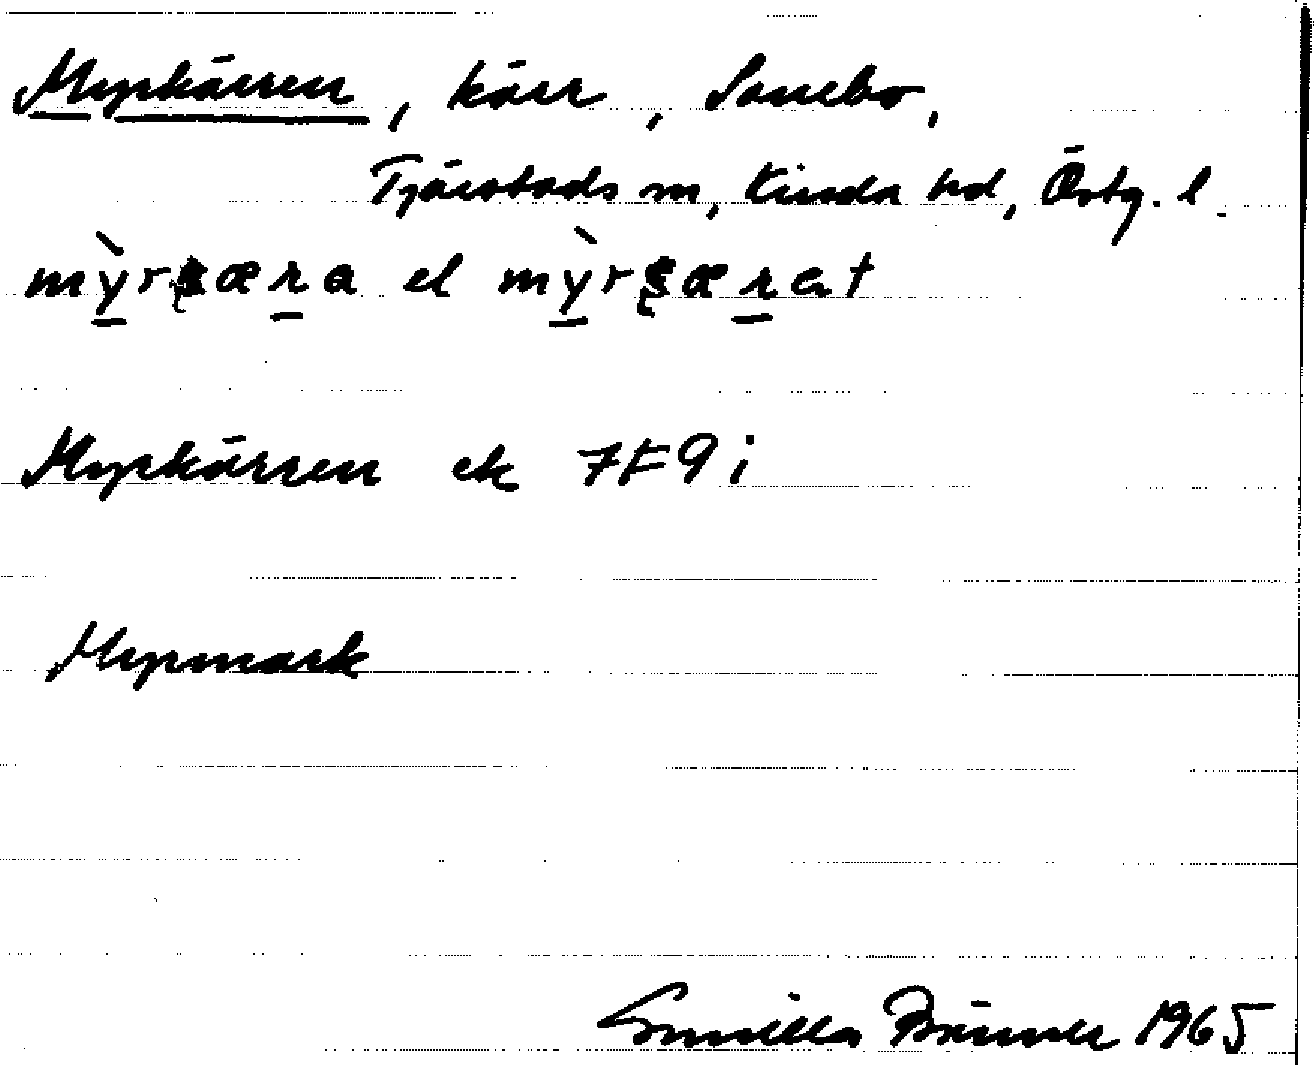 Myrkärren, kärr, Sonebo,
Tjärstads sn, Kinda hd, Östg. l.
mỳrʂæra el mỳrʂærat
Myrkärren ek 7F9i
Myrmark
Gunilla 1965